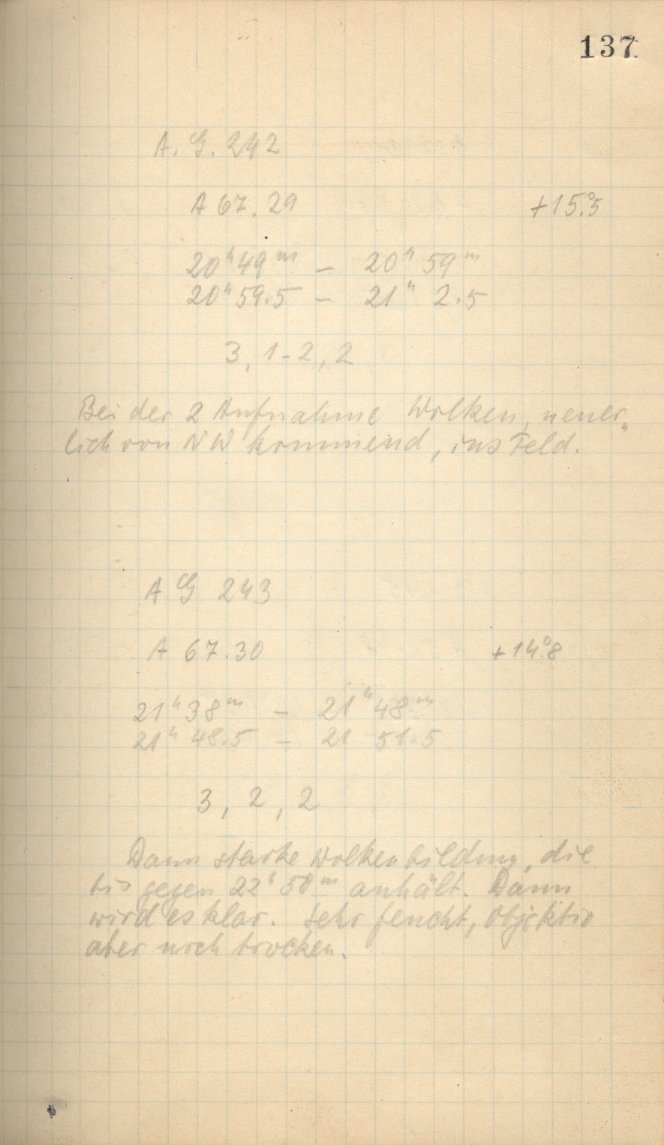 137
A. G. 242
A 67.29 +15°.5
20h 49m – 20h 59m
20h 59.5 – 21h 2.5
3, 1-2, 2
Bei der 2 Aufnahme Wolken, neuer„
lich von NW kommend, ins Feld.
A G 243
A 67.30 +14°.8
21h 38m – 21h 48m
21h 48.5 – 21 51.5
3, 2, 2
Dann starke Wolkenbildung, die
bis gegen 22h 50m anhält. Dann
wird es klar. Sehr feucht, Objektiv
aber noch trocken.